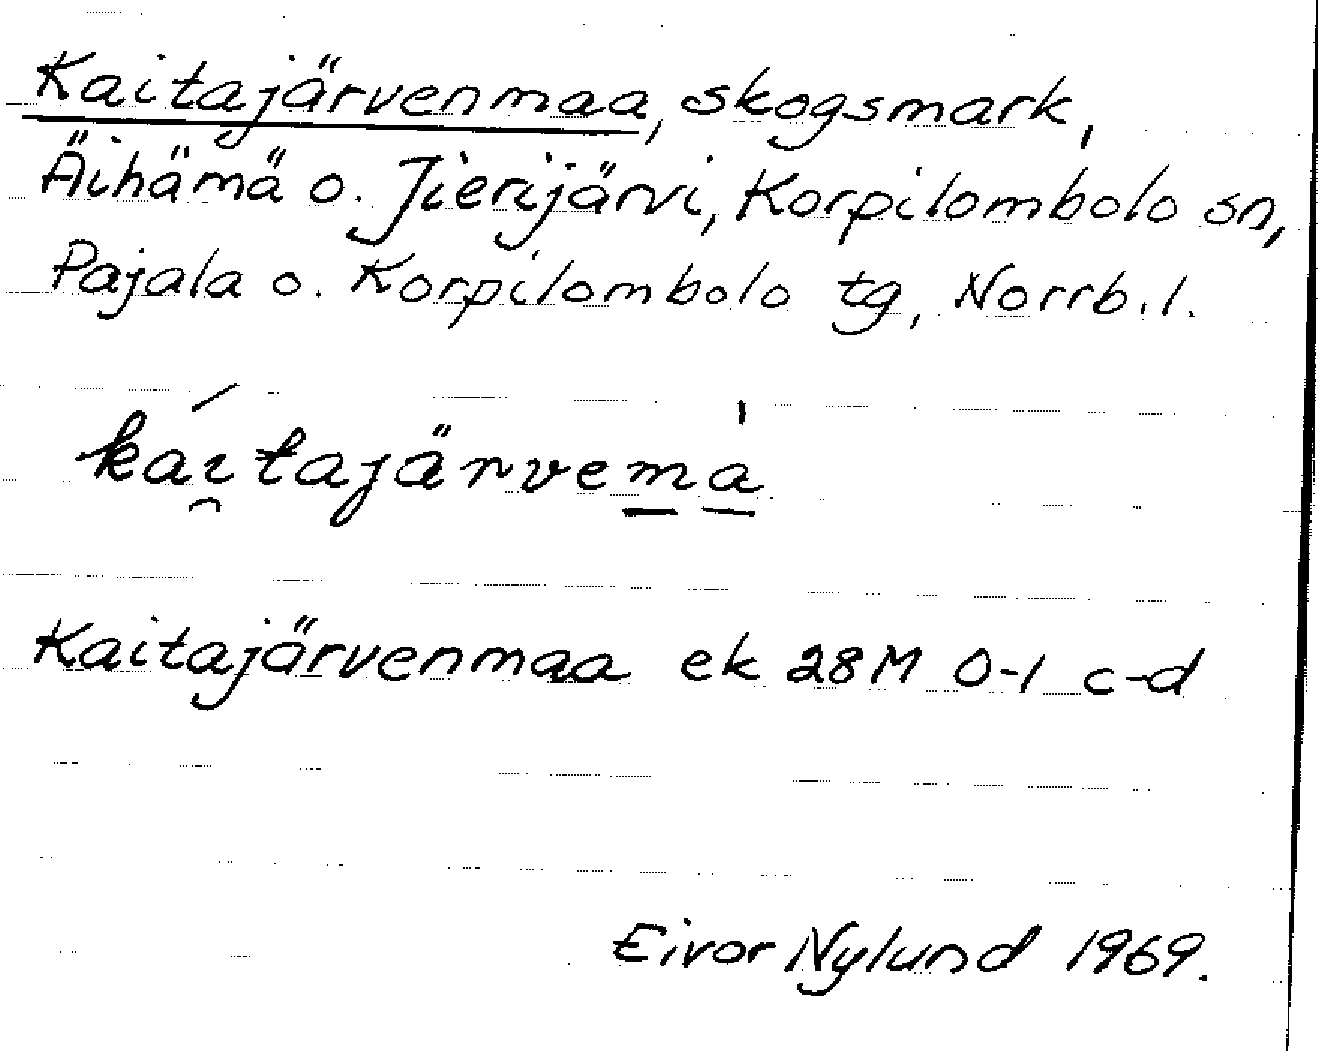 Kaitajärvenmaa, skogsmark,
Äihämä o. Jierijärvi, Korpilombolo sn,
Pajala o. Korpilombolo tg, Norrb. l.
kái̯tajärvema̱̍
Kaitajärvenmaa ek 28M 0-1 c-d
Eivor Nylund 1969.